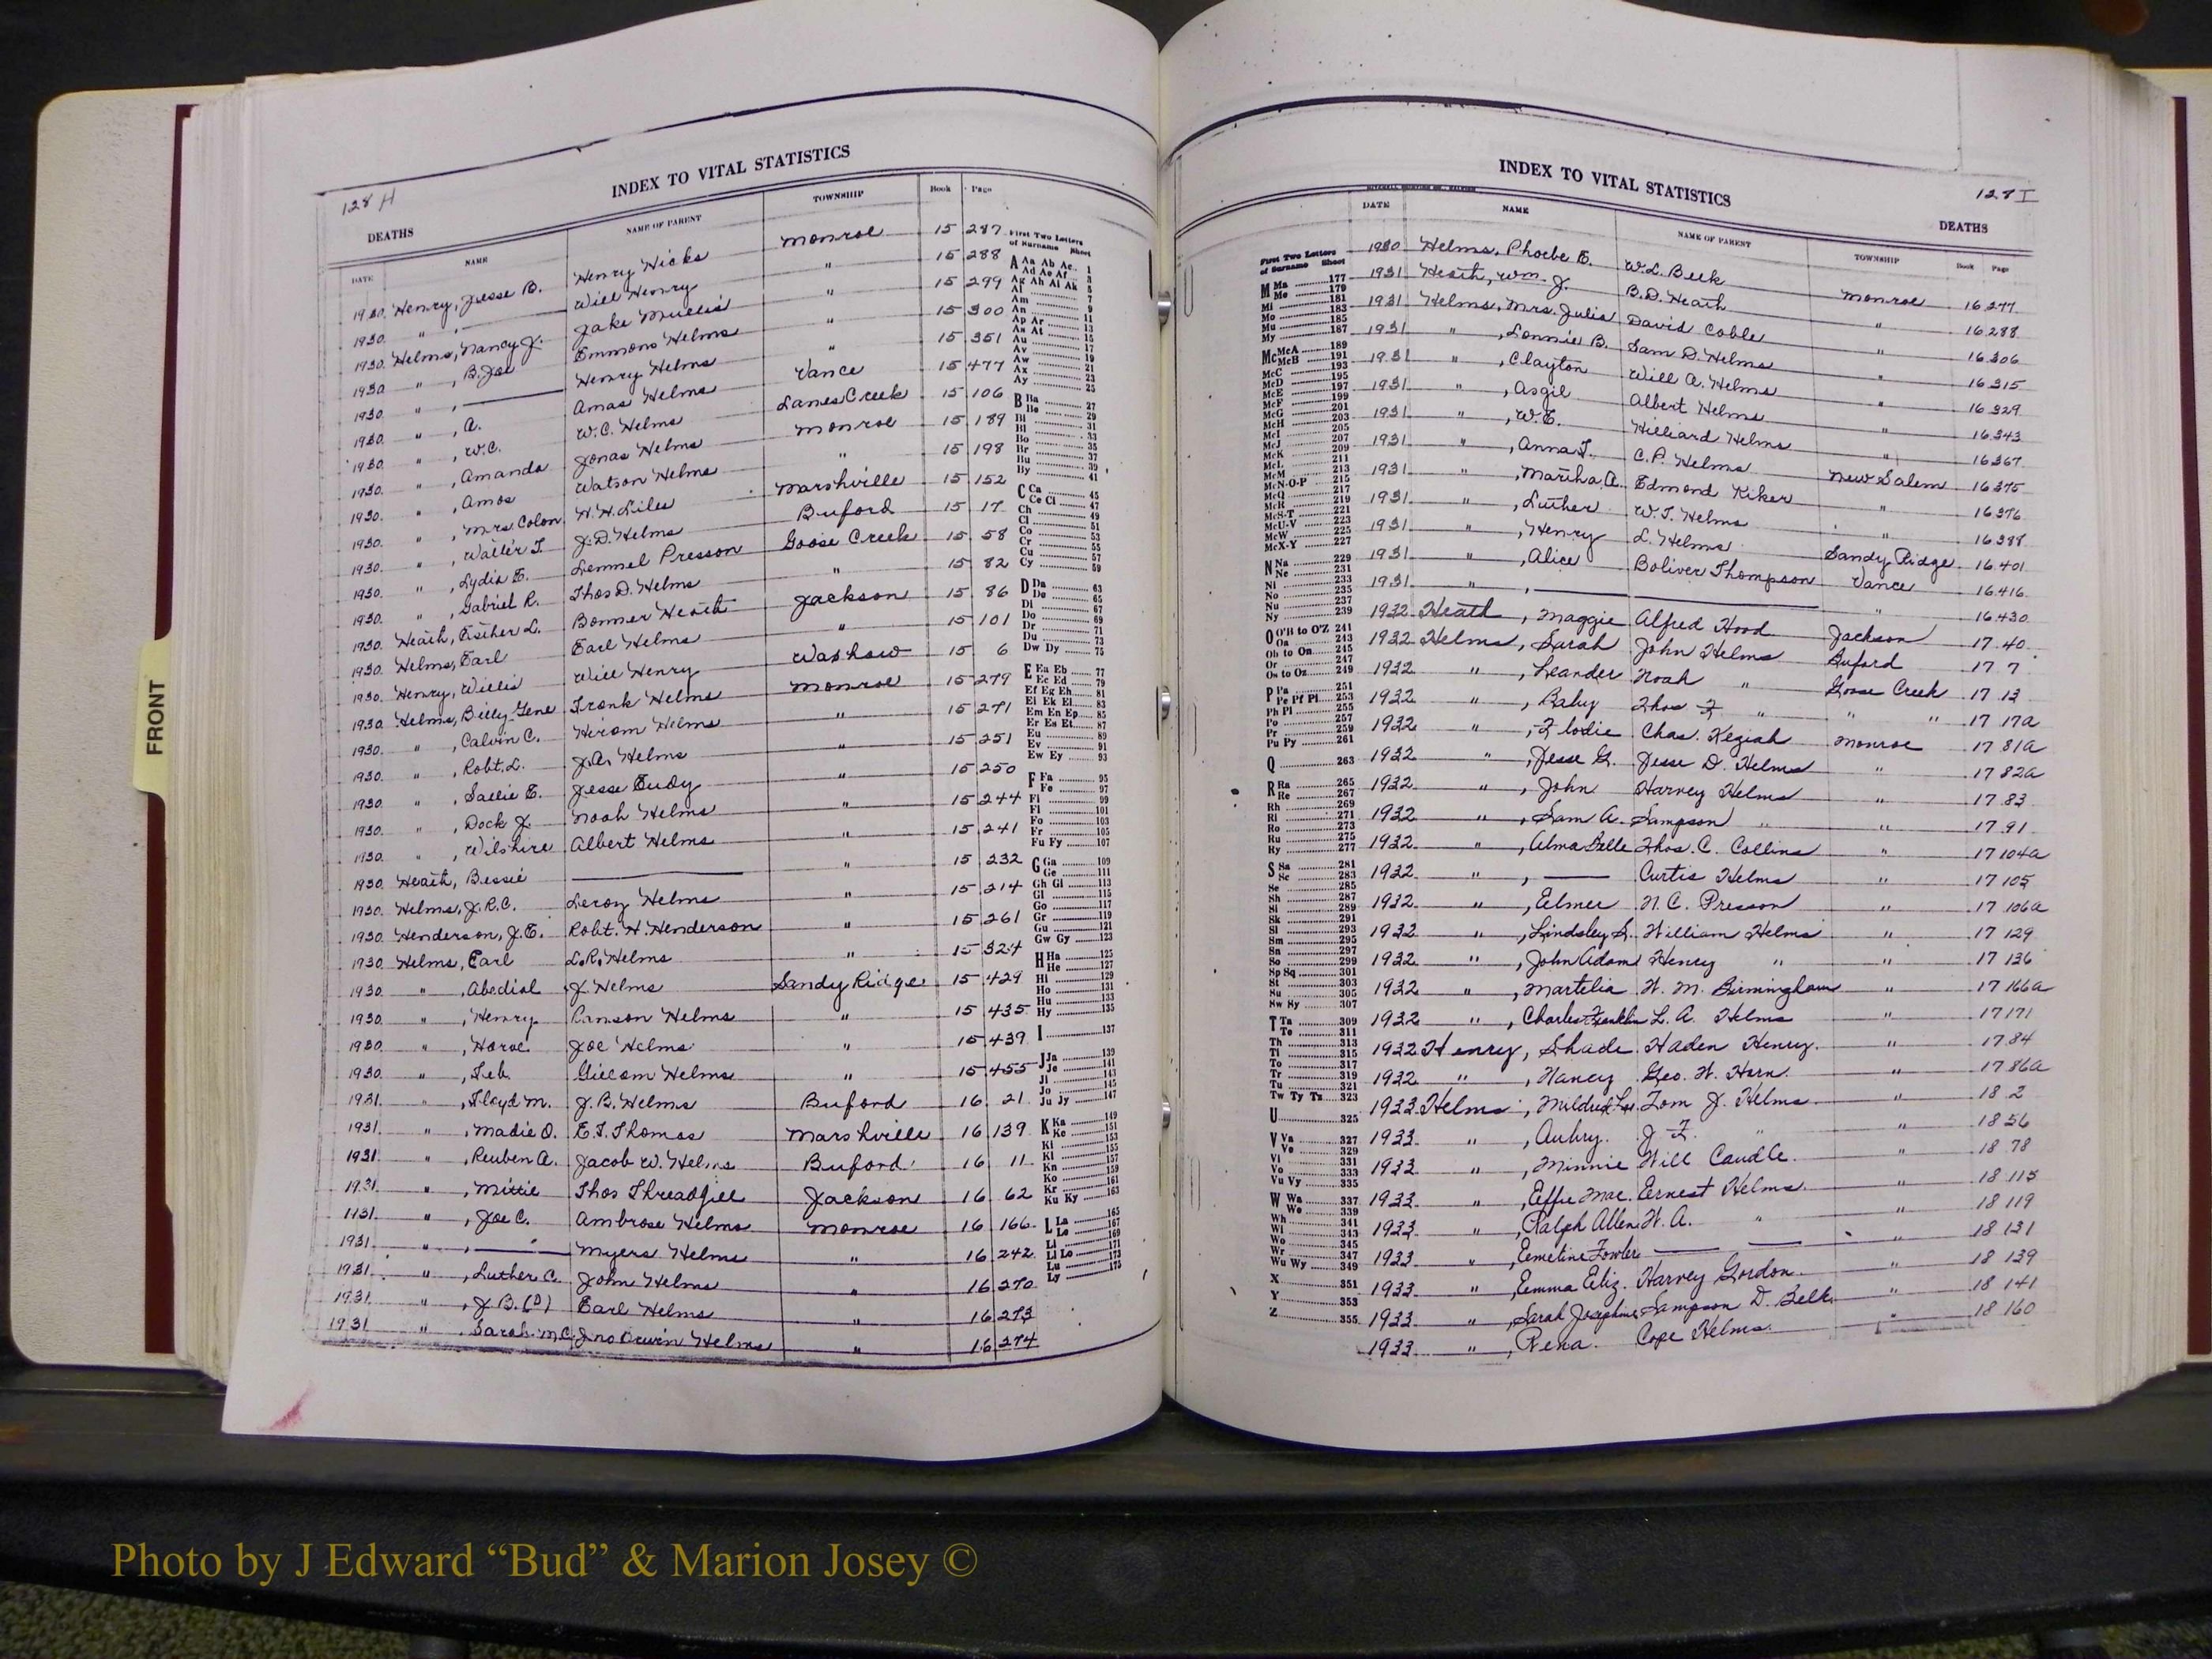 INDEX TO VITAL STATISTICS
128 H
DEATHS
DATE NAME NAME OF PARENT TOWNSHIP Book Page
1930. Henry, Jesse B. Henry Hicks Monroe 15 287
1930. " , — Will Henry " 15 288
1930. Helms, Nancy J. Jake Mullis " 15 299
1930 " , B. Joe Emmons Helms " 15 300
1930. " , — Henry Helms " 15 351
1930. " , A. Amas Helms Vance 15 477
1930. " , W.C. W.C. Helms Lanes Creek 15 106
1930. " , Amanda Jonas Helms Monroe 15 189
1930. " , Amos Watson Helms " 15 198
1930. " , Mrs. Colon H. H. Liles Marshville 15 152
1930. " , Walter T. J. D. Helms Buford 15 17
1930. " , Lydia E. Lemmel Presson Goose Creek 15 58
1930. " , Gabriel R. Thos D. Helms " 15 82
1930. Heath, Esther L. Bonner Heath Jackson 15 86
1930. Helms, Earl Earl Helms " 15 101
1930. Henry, Willis Will Henry Waxhaw 15 6
1930. Helms, Billy Gene Frank Helms Monroe 15 279
1930. " , Calvin C. Hiram Helms " 15 271
1930. " , Robt. L. J. A. Helms " 15 251
1930. " , Sallie E. Jesse Eudy 15 250
1930. " , Dock J. Noah Helms " 15 244
1930. " , Wilshire Albert Helms " 15 241
1930. Heath, Bessie — " 15 232
1930. Helms, J. R. C. Leroy Helms " 15 214
1930. Henderson, J. E. Robt. H. Henderson " 15 261
1930. Helms, Earl L. R. Helms " 15 324
1930. " , Abedial J. Helms Sandy Ridge 15 429
1930. " , Henry Ranson Helms " 15 435
1930. " , Joe Helms " 15 439
1930. " , Feb. Helms " 15 455
1931. " , Floyd M. J. B. Helms Buford 16 21
1931. " , Madie O. E. T. Thomas Marshville 16 139
1931. " , Reuben A. Jacob W. Helms Buford 16 11
1931. " , Mittie Thos Threadgill Jackson 16 62
1131. " , Joe C. Ambrose Helms Monroe 16 166
1931. " , — Myers Helms " 16 242
1931. " , Luther C. John Helms " 16 270
1931. " , J. B. (D) Earl Helms " 16 273
1931 " , Sarah McC. Jno Orwin Helms " 16 274
First Two Letters of Surname Sheet
A Aa Ab Ac 1
Ad Ae Af 3
Ag Ah Ai Ak 5
Al 7
Am 9
An 11
Ap Ar 13
As At 15
Au 17
Av 19
Aw 21
Ax 23
Ay 25
B Ba 27
Be 29
Bi 31
Bl 33
Bo 35
Br 37
Bu 39
By 41
C Ca 45
Ce Ci 47
Ch 49
Cl 51
Co 53
Cr 55
Cu 57
Cy 59
D Da 63
De 65
Di 67
Do 69
Dr 71
Du 73
Dw Dy 75
E Ea Eb 77
Ec Ed 79
Ef Eg Eh 81
Ei Ek El 83
Em En Ep 85
Er Es Et 87
Eu 89
Ev 91
Ew Ey 93
F Fa 95
Fe 97
Fi 99
Fl 101
Fo 103
Fr 105
Fu Fy 107
G Ga 109
Ge 111
Gh Gi 113
Gl 115
Go 117
Gr 119
Gu 121
Gw Gy 123
H Ha 125
He 127
Hi 129
Ho 131
Hu 133
Hy 135
I 137
J Ja 139
Je 141
Ji 143
Jo 145
Ju Jy 147
K Ka 149
Ke 151
Ki 153
Kl 155
Kn 157
Ko 159
Kr 161
Ku Ky 163
L La 165
Le 167
Li 169
Ll Lo 171
Lu 173
Ly 175
INDEX TO VITAL STATISTICS
128 I
DEATHS
DATE NAME NAME OF PARENT TOWNSHIP Book Page
1930 Helms, Phoebe E. W. L. Belk Monroe 16 277
1931 Heath, Wm. J. B. D. Heath " 16 288
1931 Helms, Mrs. Julia David Coble " 16 306
1931 " , Lonnie B. Sam D. Helms " 16 315
1931 " , Clayton Will A. Helms " 16 329
1931 " , Asgil Albert Helms " 16 343
1931 " , W. E. Hilliard Helms " 16 367
1931 " , Anna J. C. P. Helms New Salem 16 375
1931 " , Martha A. Edmond Kiker " 16 376
1931 " , Luther W. T. Helms " 16 388
1931 " , Henry L. Helms Sandy Ridge 16 401
1931 " , Alice Boliver Thompson Vance 16 416
1931 " , — — " 16 430
1932 Heath , Maggie Alfred Hood Jackson 17 40
1932 Helms , Sarah John Helms Buford 17 7
1932 " , Leander Noah " Goose Creek 17 13
1932 " , Baby Thos F. " " " 17 17a
1932 " , Flodie Chas. Keziah Monroe 17 81a
1932 " , Jesse G. Jesse D. Helms " 17 82a
1932 " , John Harvey Helms " 17 83
1932 " , Sam A. Sampson " " 17 91
1932 " , Alma Belle Thos. C. Collins " 17 104a
1932 " , — Curtis Helms " 17 105
1932 " , Elmer H. C. Presson " 17 106a
1932 " , Lindsley L. William Helms " 17 129
1932 " , John Adams Henry " " 17 136
1932 " , Martelia W. M. Birmingham " 17 166a
1932 " , Charles Franklin L. A. Helms " 17 171
1932 Henry , Shade Haden Henry " 17 84
1932 " , Nancy Geo. W. Horn " 17 86a
1933 Helms , Mildred Lee Tom J. Helms " 18 2
1933 " , Aubry. J. F. " " 18 56
1933 " , Minnie Will Caudle " 18 78
1933 " , Effie Mae. Ernest Helms. " 18 115
1933 " , Ralph Allen H. A. " " 18 119
1933 " , Emeline Fowler — — " 18 131
1933 " , Emma Eliz. Harvey Gordon. " 18 139
1933 " , Sarah Josephine Sampson D. Belk. " 18 141
1933 " , Rena. Cope Helms. " 18 160
First Two Letters of Surname Sheet
M Ma 177
Me 179
Mi 181
Mo 183
Mu 185
My 187
Mc McA 189
McB 191
McC 193
McD 195
McE 197
McF 199
McG 201
McH 203
McI 205
McJ 207
McK 209
McL 211
McM 213
McN-O-P 215
McQ 217
McR 219
McS-T 221
McU-V 223
McW 225
McX-Y 227
N Na 229
Ne 231
Ni 233
No 235
Nu 237
Ny 239
O O'B to O'Z 241
Oa 243
Ob to On 245
Or 247
Os to Oz 249
P Pa 251
Pe Pf Pi 253
Ph Pl 255
Po 257
Pr 259
Pu Py 261
Q 263
R Ra 265
Re 267
Rh 269
Ri 271
Ro 273
Ru 275
Ry 277
S Sa 281
Sc 283
Se 285
Sh 287
Si 289
Sk 291
Sl 293
Sm 295
Sn 297
So 299
Sp Sq 301
St 303
Su 305
Sw Sy 307
T Ta 309
Te 311
Th 313
Ti 315
To 317
Tr 319
Tu 321
Tw Ty Tz 323
U 325
V Va 327
Ve 329
Vi 331
Vo 333
Vu Vy 335
W Wa 337
We 339
Wh 341
Wi 343
Wo 345
Wr 347
Wu Wy 349
X 351
Y 353
Z 355
FRONT
Photo by J Edward “Bud” & Marion Josey ©